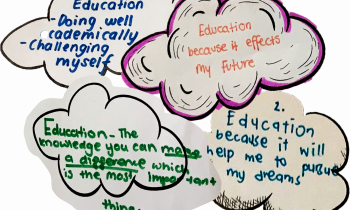 Education
-Doing well
cademically
-challenging
myself
Education
because it effects
my future
Education - The
knowledge you can make
a difference which
is the most important
thing.
2.
Education
because it will
help me to pursue
my dreams